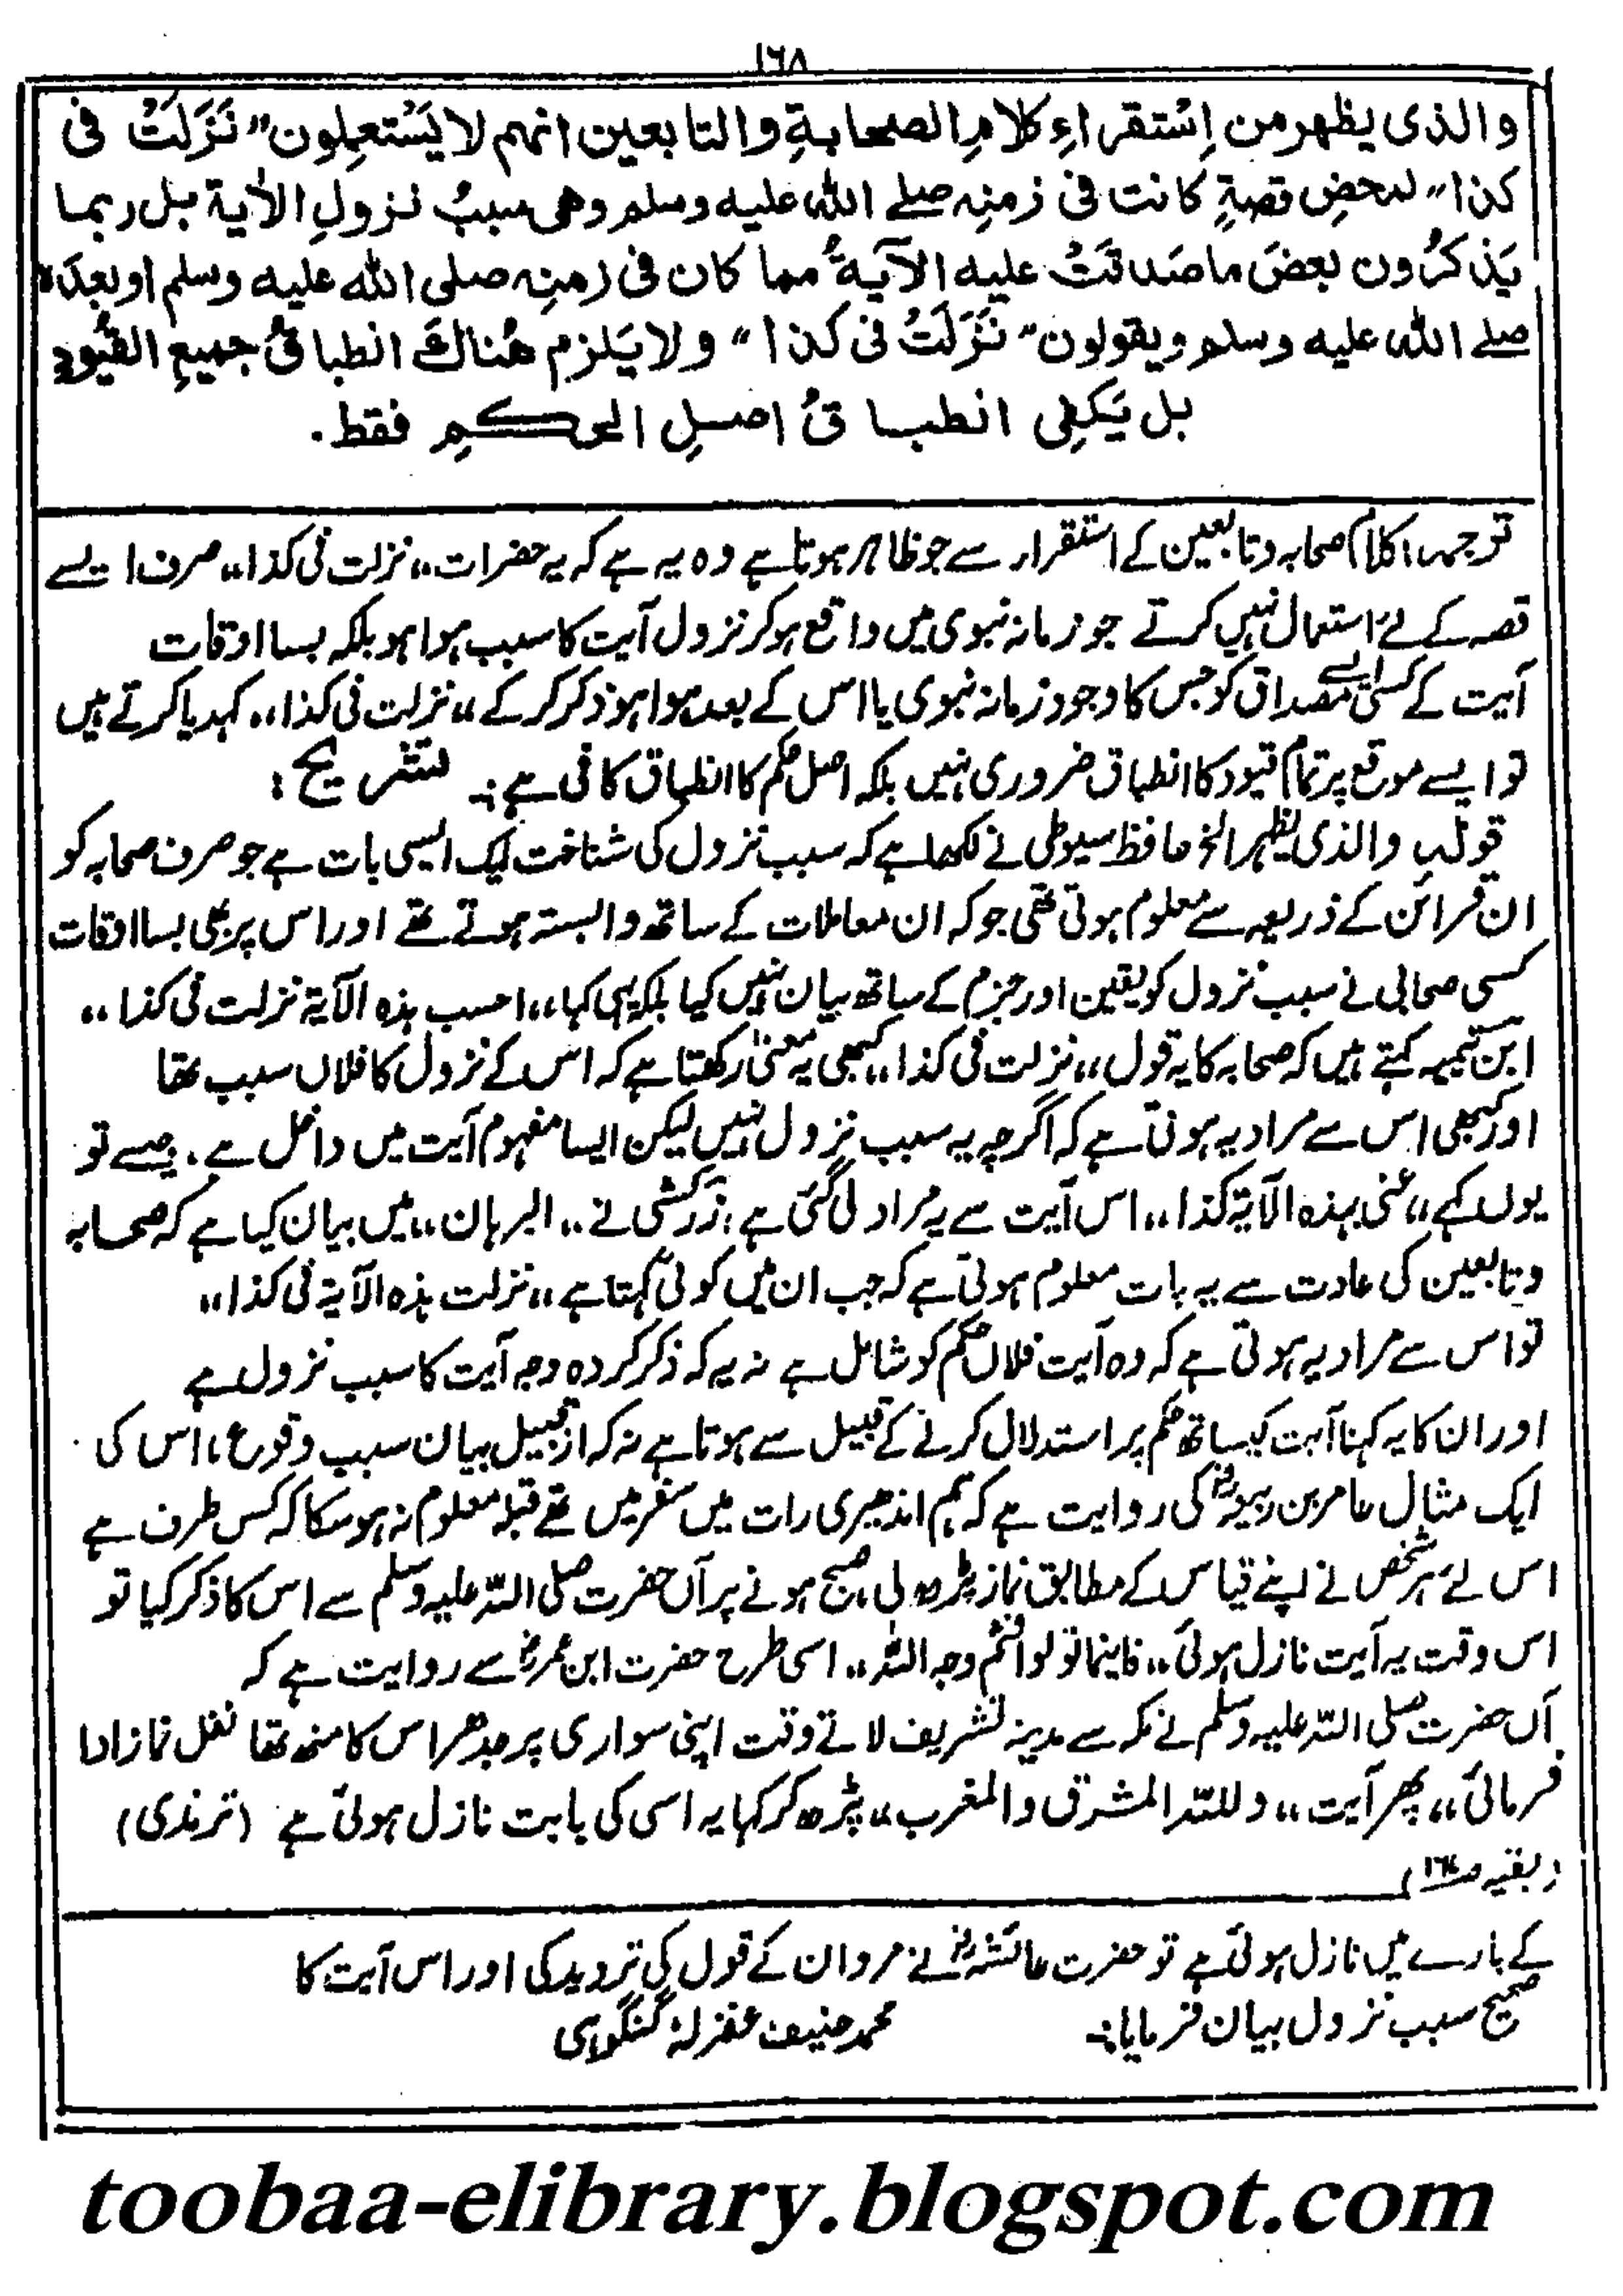 ۱۶۸
والذى يظهر من اِسْتقراءِ كلامِ الصحابةِ والتابعين انهم لا يَسْتعمِلون "نَزَلَتْ فى
كذا" لمحضِ قصةٍ كانت فى زمنِه صلے الله عليه وسلم وهى سببُ نزولِ الأية بل ربما
يَذكرُون بعضَ ما صَدقَتْ عليه الآيةُ مما كان فى زمنِه صلى الله عليه وسلم او بعدَه
صلے الله عليه وسلم ويقولون "نَزَلَتْ فى كذا" ولا يَلزم هُناكَ انطباقُ جميعِ القُيود
بل يَكفِى انطباقُ اصلِ الحكمِ فقط.
ترجمہ: کلام صحابہ وتابعین کے استقرار سے جو ظاہر ہوتا ہے وہ یہ ہے کہ یہ حضرات ،،نزلت فی کذا،، صرف ایسے
قصہ کے لئے استعمال نہیں کرتے جو زمانہ نبوی میں واقع ہو کر نزول آیت کا سبب ہوا ہو بلکہ بسا اوقات
آیت کے کسی ایسے مصداق کو جس کا وجود زمانہ نبوی یا اس کے بعد ہوا ہو ذکر کر کے ،،نزلت فی کذا،، کہدیا کرتے ہیں
تو ایسے موقع پر تمام قیود کا انطباق ضروری نہیں بلکہ اصل حکم کا انطباق کافی ہے :۔ تشریح :
قولہ والذی یظہر الخ حافظ سیوطی نے لکھا ہے کہ سبب نزول کی شناخت ایک ایسی بات ہے جو صرف صحابہ کو
ان قرائن کے ذریعہ سے معلوم ہوتی تھی جو کہ ان معاملات کے ساتھ وابستہ ہوتے تھے اور اس پر بھی بسا اوقات
کسی صحابی نے سبب نزول کو یقین اور جزم کے ساتھ بیان نہیں کیا بلکہ یہی کہا ،،احسب ہذہ الآیۃ نزلت فی کذا،،
ابن تیمیہ کہتے ہیں کہ صحابہ کا یہ قول ،،نزلت فی کذا،، کبھی یہ معنیٰ رکھتا ہے کہ اس کے نزول کا فلاں سبب تھا
اور کبھی اس سے مراد یہ ہوتی ہے کہ اگرچہ یہ سبب نزول نہیں لیکن ایسا مفہوم آیت میں داخل ہے . جیسے تو
یوں کہے ،،عُنی بہذہ الآیۃ کذا،، اس آیت سے یہ مراد لی گئی ہے ، زرکشی نے ،،البرہان،، میں بیان کیا ہے کہ صحابہ
وتابعین کی عادت سے یہ بات معلوم ہوتی ہے کہ جب ان میں کوئی کہتا ہے ،،نزلت ہذہ الآیۃ فی کذا،،
تو اس سے مراد یہ ہوتی ہے کہ وہ آیت فلاں حکم کو شامل ہے نہ یہ کہ ذکر کردہ وجہ آیت کا سبب نزول ہے
اور ان کا یہ کہنا آیت کیساتھ حکم پر استدلال کرنے کے قبیل سے ہوتا ہے نہ کہ از قبیل بیان سبب وقوع ، اس کی
ایک مثال عامر بن ربیعہؓ کی روایت ہے کہ ہم اندھیری رات میں سفر میں تھے قبلہ معلوم نہ ہو سکا کہ کس طرف ہے
اس لئے ہر شخص نے اپنے قیاس کے مطابق نماز پڑھ لی ، صبح ہونے پر آں حضرت صلی اللہ علیہ وسلم سے اس کا ذکر کیا تو
اس وقت یہ آیت نازل ہوئی ،،فاینما تولوا فثم وجہ اللہ،، اسی طرح حضرت ابن عمرؓ سے روایت ہے کہ
آں حضرت صلی اللہ علیہ وسلم نے مکہ سے مدینہ تشریف لاتے وقت اپنی سواری پر جدھر اس کا منھ تھا نفل نماز ادا
فرمائی ،، پھر آیت ،،وللہ المشرق والمغرب،، پڑھ کر کہا یہ اسی کی بابت نازل ہوئی ہے (ترمذی)
(بقیہ ص۱۶۷)
کے بارے میں نازل ہوئی ہے تو حضرت عائشہؓ نے مروان کے قول کی تردید کی اور اس آیت کا
صحیح سبب نزول بیان فرمایا :۔ محمد حنیف غفرلہٗ گنگوہی
toobaa-elibrary.blogspot.com